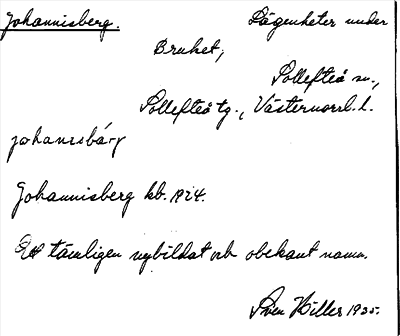 Johannisberg. Lägenheter under
Bruket,
Sollefteå sn.,
Sollefteå tg., Västernorrl. l.
johan
Johannisberg kb. 1924.
Ett tämligen nybildat och obekant namn.
Sven Hiller 1935.